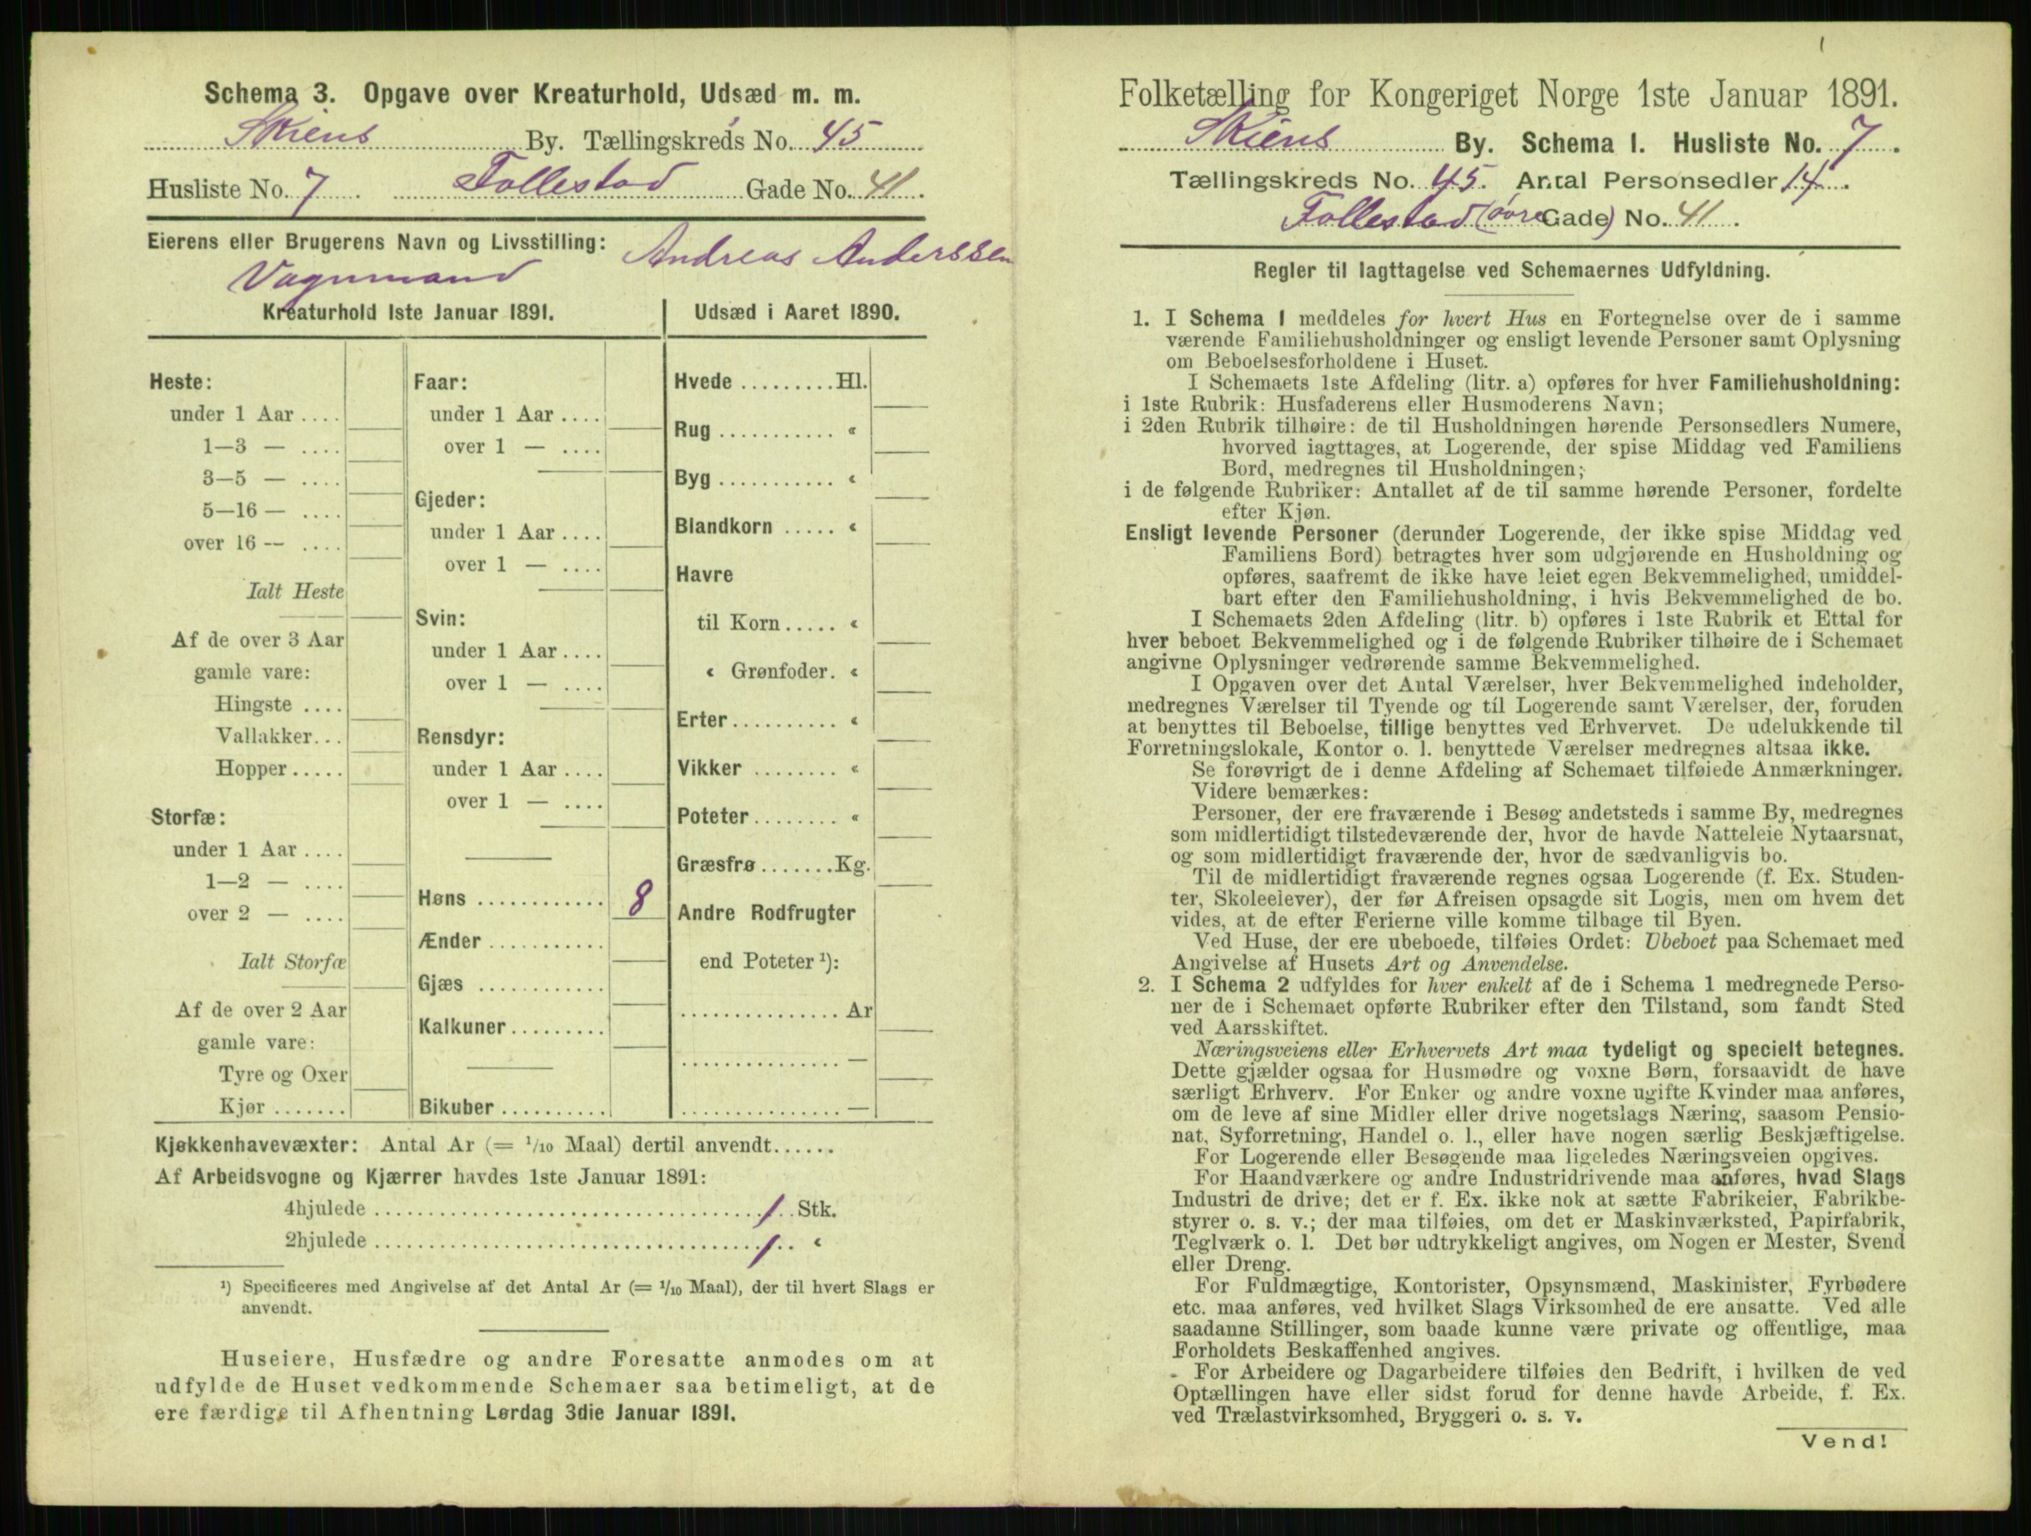 Schema 3. Opgave over Kreaturhold, Udsæd m. m.
Skiens By. Tællingskreds No. 45
Husliste No. 7 Follestad Gade No. 41.
Eierens eller Brugerens Navn og Livsstilling: Andreas Anderssen
Vognmand
Kreaturhold 1ste Januar 1891.
Heste:
under 1 Aar ....
1—3 — ....
3—5 — ....
5—16 — ....
over 16 — ....
Ialt Heste
Af de over 3 Aar
gamle vare:
Hingste ....
Vallakker...
Hopper.....
Storfæ:
under 1 Aar ....
1—2 — ....
over 2 — ....
Ialt Storfæ
Af de over 2 Aar
gamle vare:
Tyre og Oxer
Kjør .......
Faar:
under 1 Aar ....
over 1 — ....
Gjeder:
under 1 Aar ....
over 1 — ....
Svin:
under 1 Aar ....
over 1 — ....
Rensdyr:
under 1 Aar ....
over 1 — ....
Høns ............ 8
Ænder ...........
Gjæs ............
Kalkuner.........
Bikuber ..........
Udsæd i Aaret 1890.
Hvede .........Hl.
Rug ........... «
Byg ........... «
Blandkorn ..... «
Havre
til Korn..... «
« Grønfoder. «
Erter.......... «
Vikker ........ «
Poteter........ «
Græsfrø .......Kg.
Andre Rodfrugter
end Poteter ¹):
............... Ar
............... —
............... —
Kjøkkenhavevæxter: Antal Ar (= ¹/₁₀ Maal) dertil anvendt......
Af Arbeidsvogne og Kjærrer havdes 1ste Januar 1891:
4hjulede .................................... 1 Stk.
2hjulede .................................... 1 «
¹) Specificeres med Angivelse af det Antal Ar (= ¹/₁₀ Maal), der til hvert Slags er
anvendt.
Huseiere, Husfædre og andre Foresatte anmodes om at
udfylde de Huset vedkommende Schemaer saa betimeligt, at de
ere færdige til Afhentning Lørdag 3die Januar 1891.
1
Folketælling for Kongeriget Norge 1ste Januar 1891.
Skiens By. Schema I. Husliste No. 7.
Tællingskreds No. 45. Antal Personsedler 14.
Follestad (øvre Gade) No. 41.
Regler til Iagttagelse ved Schemaernes Udfyldning.
1. I Schema I meddeles for hvert Hus en Fortegnelse over de i samme
værende Familiehusholdninger og ensligt levende Personer samt Oplysning
om Beboelsesforholdene i Huset.
I Schemaets 1ste Afdeling (litr. a) opføres for hver Familiehusholdning:
i 1ste Rubrik: Husfaderens eller Husmoderens Navn;
i 2den Rubrik tilhøire: de til Husholdningen hørende Personsedlers Numere,
hvorved iagttages, at Logerende, der spise Middag ved Familiens
Bord, medregnes til Husholdningen;
i de følgende Rubriker: Antallet af de til samme hørende Personer, fordelte
efter Kjøn.
Ensligt levende Personer (derunder Logerende, der ikke spise Middag ved
Familiens Bord) betragtes hver som udgjørende en Husholdning og
opføres, saafremt de ikke have leiet egen Bekvemmelighed, umiddel-
bart efter den Familiehusholdning, i hvis Bekvemmelighed de bo.
I Schemaets 2den Afdeling (litr. b) opføres i 1ste Rubrik et Ettal for
hver beboet Bekvemmelighed og i de følgende Rubriker tilhøire de i Schemaet
angivne Oplysninger vedrørende samme Bekvemmelighed.
I Opgaven over det Antal Værelser, hver Bekvemmelighed indeholder,
medregnes Værelser til Tyende og til Logerende samt Værelser, der, foruden
at benyttes til Beboelse, tillige benyttes ved Erhvervet. De udelukkende til
Forretningslokale, Kontor o. l. benyttede Værelser medregnes altsaa ikke.
Se forøvrigt de i denne Afdeling af Schemaet tilføiede Anmærkninger.
Videre bemærkes:
Personer, der ere fraværende i Besøg andetsteds i samme By, medregnes
som midlertidigt tilstedeværende der, hvor de havde Natteleie Nytaarsnat,
og som midlertidigt fraværende der, hvor de sædvanligvis bo.
Til de midlertidigt fraværende regnes ogsaa Logerende (f. Ex. Studen-
ter, Skoleelever), der før Afreisen opsagde sit Logis, men om hvem det
vides, at de efter Ferierne ville komme tilbage til Byen.
Ved Huse, der ere ubeboede, tilføies Ordet: Ubeboet paa Schemaet med
Angivelse af Husets Art og Anvendelse.
2. I Schema 2 udfyldes for hver enkelt af de i Schema 1 medregnede Perso-
ner de i Schemaet opførte Rubriker efter den Tilstand, som fandt Sted
ved Aarsskiftet.
Næringsveiens eller Erhvervets Art maa tydeligt og specielt betegnes.
Dette gjælder ogsaa for Husmødre og voxne Børn, forsaavidt de have
særligt Erhverv. For Enker og andre voxne ugifte Kvinder maa anføres,
om de leve af sine Midler eller drive nogetslags Næring, saasom Pensio-
nat, Syforretning, Handel o. l., eller have nogen særlig Beskjæftigelse.
For Logerende eller Besøgende maa ligeledes Næringsveien opgives.
For Haandværkere og andre Industridrivende maa anføres, hvad Slags
Industri de drive; det er f. Ex. ikke nok at sætte Fabrikeier, Fabrikbe-
styrer o. s. v.; der maa tilføies, om det er Maskinværksted, Papirfabrik,
Teglværk o. l. Det bør udtrykkeligt angives, om Nogen er Mester, Svend
eller Dreng.
For Fuldmægtige, Kontorister, Opsynsmænd, Maskinister, Fyrbødere
etc. maa anføres, ved hvilket Slags Virksomhed de ere ansatte. Ved alle
saadanne Stillinger, som baade kunne være private og offentlige, maa
Forholdets Beskaffenhed angives.
For Arbeidere og Dagarbeidere tilføies den Bedrift, i hvilken de ved
Optællingen have eller sidst forud for denne havde Arbeide, f. Ex.
ved Trælastvirksomhed, Bryggeri o. s. v.
Vend!